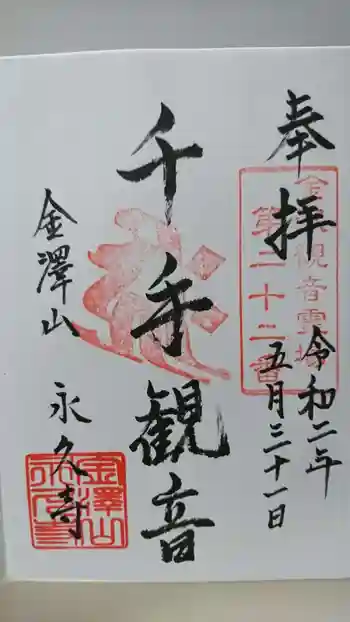 奉拝
令和二年
五月三十一日
千手観音
金澤山
永久寺
観音霊場
第二十二番
金澤山
永久寺